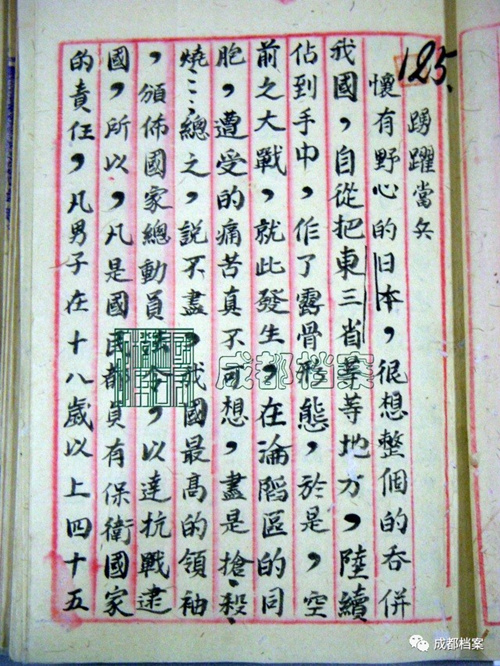 125.
踴躍當兵
懷有野心的日本，很想整個的吞併
我國，自從把東三省等等地方，陸續
佔到手中，作了露骨形態，於是，空
前之大戰，就此發生，在淪陷區的同
胞，遭受的痛苦真不可想，盡是搶，殺，
燒……總之，說不盡，我國最高的領袖
，頒佈國家總動員法令，以達抗戰建
國，所以，凡是國民都負有保衛國家
的責任，凡男子在十八歲以上四十五
成都档案
成都档案